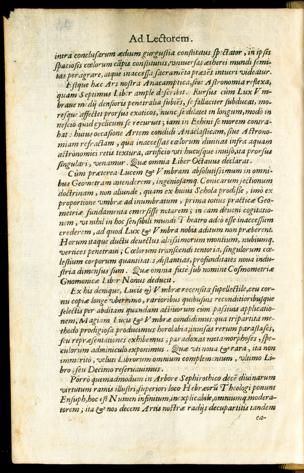 Ad Lectorem.
intra conclusarum ædium gurgustia constitutus spectator, in ipsis
spaciosis cœlorum cãpis constitutus, vniuersas ætherei mundi semi-
tas peragrare, atque inaccessa sacramẽta præsẽs intueri videatur.
Estque hæc Ars nostra Anacamptica, siue Astronomia reflexa,
quam Septimus Liber amplè disserit. Rursus cùm Lux Vm-
bræ
assectet prorsus exoticos, nunc se dilatet in longum, modò in
nescio quod cyclicum se recuruet; iam in Ellipsis morem contra-
hat: hunc occasione Artem condidi Anaclasticam, siue Astrono-
miam refractam, qua inaccessas cœlorum diuitias infra aquam
astronomici retis textura, artificio vti hucusque inuiso, ita prorsus
singulari, venamur. Quæ omnia Liber Octauus declarat.
Cùm præterea Lucem & Vmbram absolutissimum in omni-
bus Geometram aduerterem, ingeniosamq; Conicarum sectionum
doctrinam, non aliunde, quàm ex huius Schola prodisse, imò ex
proportione vmbræ ad inumbratum, prima totius practicæ Geo-
metriæ fundamenta emersisse notarem; in eam deueni cogitatio-
nem, vt nihil in hoc sensibilis mundi Theatro adeò esse inaccessum
crederem, ad quod Lux & Vmbra nobis aditum non præberent.
Horum itaque ductu deuectus altissimorum montium, nubiumq;
vertices penetraui; Cœlorum transcendi tentoria, singulorum cœ-
lestium corporum quantitates, distantias, profunditates noua indu-
stria dimensus sum. Quæ omnia fusè sub nomine Cosmometriæ
Gnomonicæ Liber Nonus deducit.
Ex his denique, Lucis & Vmbræ recensita supellectile, ceu cor-
nu copiæ longè vberrimo, rarioribus quibusuis reconditioribusque
selectis per abditam quandam actiuorum cum passiuis applicatio-
nem, Magiam Lucis & Vmbræ condidimus: qua tripartita me-
thodo prodigiosa producimus horolabia, inuisas rerum parastases,
seu repræsentationes exhibemus; paradoxas metamorphoses, spe-
culorum adminiculo exponimus. Quæ vti noua & rara, ita non
immeritò, velut Librorum omnium complementum, vltimo Li-
bro, seu Decimo reseruauimus.
Porrò quemadmodum in Arbore Sephirothico decẽ diuinarum
virtutum ramis illustri, superiori loco Hebræorũ Theologi ponunt
Ensuph, hoc est Numen infinitum, inexplicabile, omniumq; modera-
torem; ita & nos decem Artis nostræ radijs decupartitis tandem
ca-